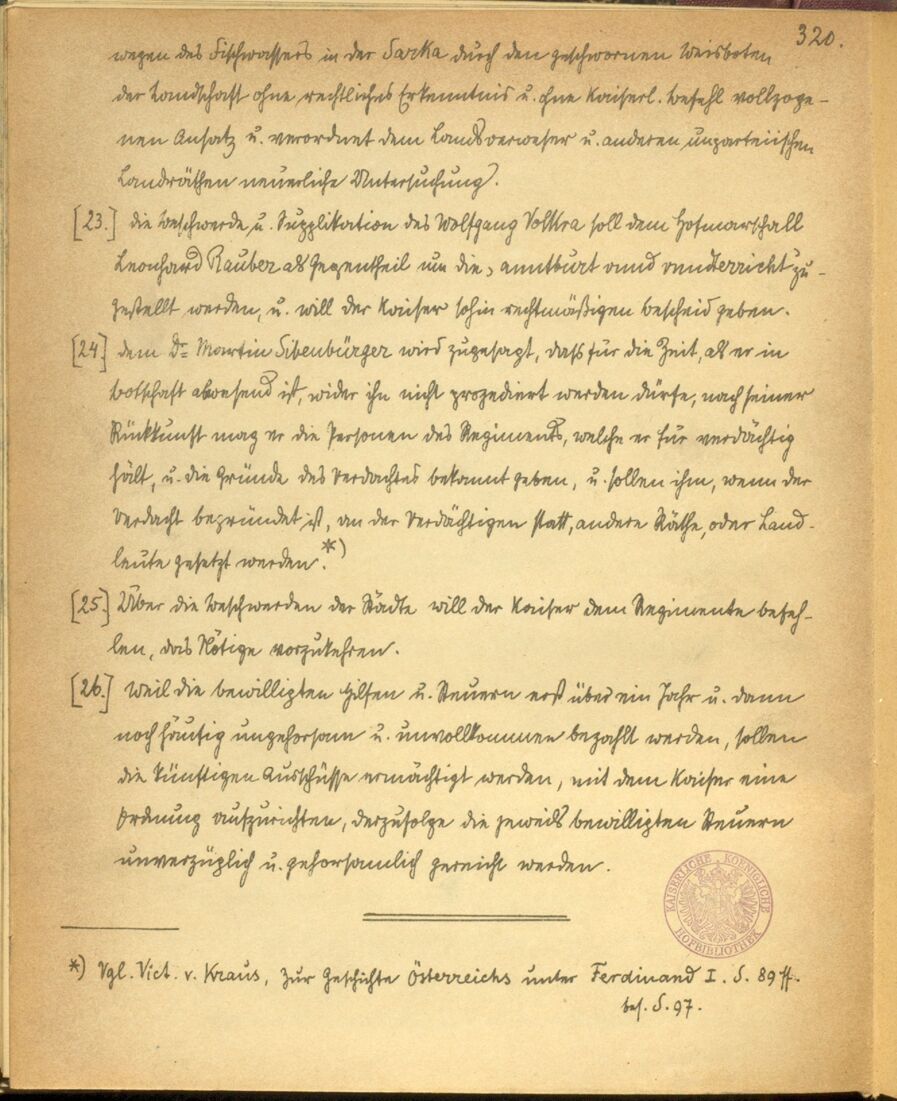 320.
wegen des Fischwassers in der Sarka durch den geschwornen Weisboten
der Landschaft ohne rechtliches Erkenntnis u. ohne Kaiserl. Befehl vollzoge-
nen Ansatz u. verordnet dem Landsverweser u. anderen unparteiischen
Landräthen neuerliche Untersuchung).
[23.] die Beschwerde u. Supplikation des Wolfgang Volkra soll dem Hofmarschall
Leonhard Rauber als Gegentheil um die „anntburt vnnd vnnderricht“ zu-
gestellt werden, u. will der Kaiser sohin rechtmäßigen Bescheid geben.
[24.] dem Dr Martin Sibenbürger wird zugesagt, dass für die Zeit, als er in
Botschaft abwesend ist, wider ihn nicht prozediert werden dürfe, nach seiner
Rückkunft mag er die Personen des Regiments, welche er für verdächtig
hält, u. die Gründe des Verdachtes bekannt geben, u. sollen ihm, wenn der
Verdacht begründet ist, an der Verdächtigen statt, andere Räthe, oder Land-
leute gesetzt werden.*)
[25.] Über die Beschwerden der Städte will der Kaiser dem Regimente befeh-
len, das Nötige vorzukehren.
[26.] Weil die bewilligten Hilfen u. Steuern erst über ein Jahr u. dann
noch häufig ungehorsam u. unvollkommen bezahlt werden, sollen
die künftigen Ausschüsse ermächtigt werden, mit dem Kaiser eine
Ordnung aufzurichten, derzufolge die jeweils bewilligten Steuern
unverzüglich u. gehorsamlich gereicht werden.
KAISERLICHE KOENIGLICHE
HOFBIBLIOTHEK
*) Vgl. Vict. v. Kraus, Zur Geschichte Österreichs unter Ferdinand I. S. 89 ff.
bes. S. 97.